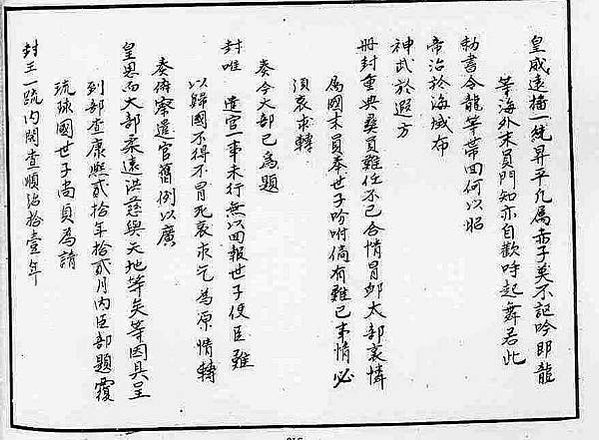 皇威遠播一統昇平凡爲赤子莫不記吟即龍
等海外末員門知亦自歡呼起舞若此
勅書令龍等帶回何以昭
帝治於海域布
神武於遐方
冊封重典彝員難任不已合情冒叩大部哀憐
爲國末員奉世子吩咐倘有難已事情必
須哀求轉
奏今大部已爲題
封唯遣官一事未行無以回報世子使臣雖
以歸國不得不冒死哀求乞爲原情轉
奏俯察遣官舊例以廣
皇恩而大部柔遠洪慈與天地等矣等因具呈
到部查康熙貳拾年拾貳月內臣部題覆
琉球國世子尚貞爲請
封王一疏內開查順治拾壹年